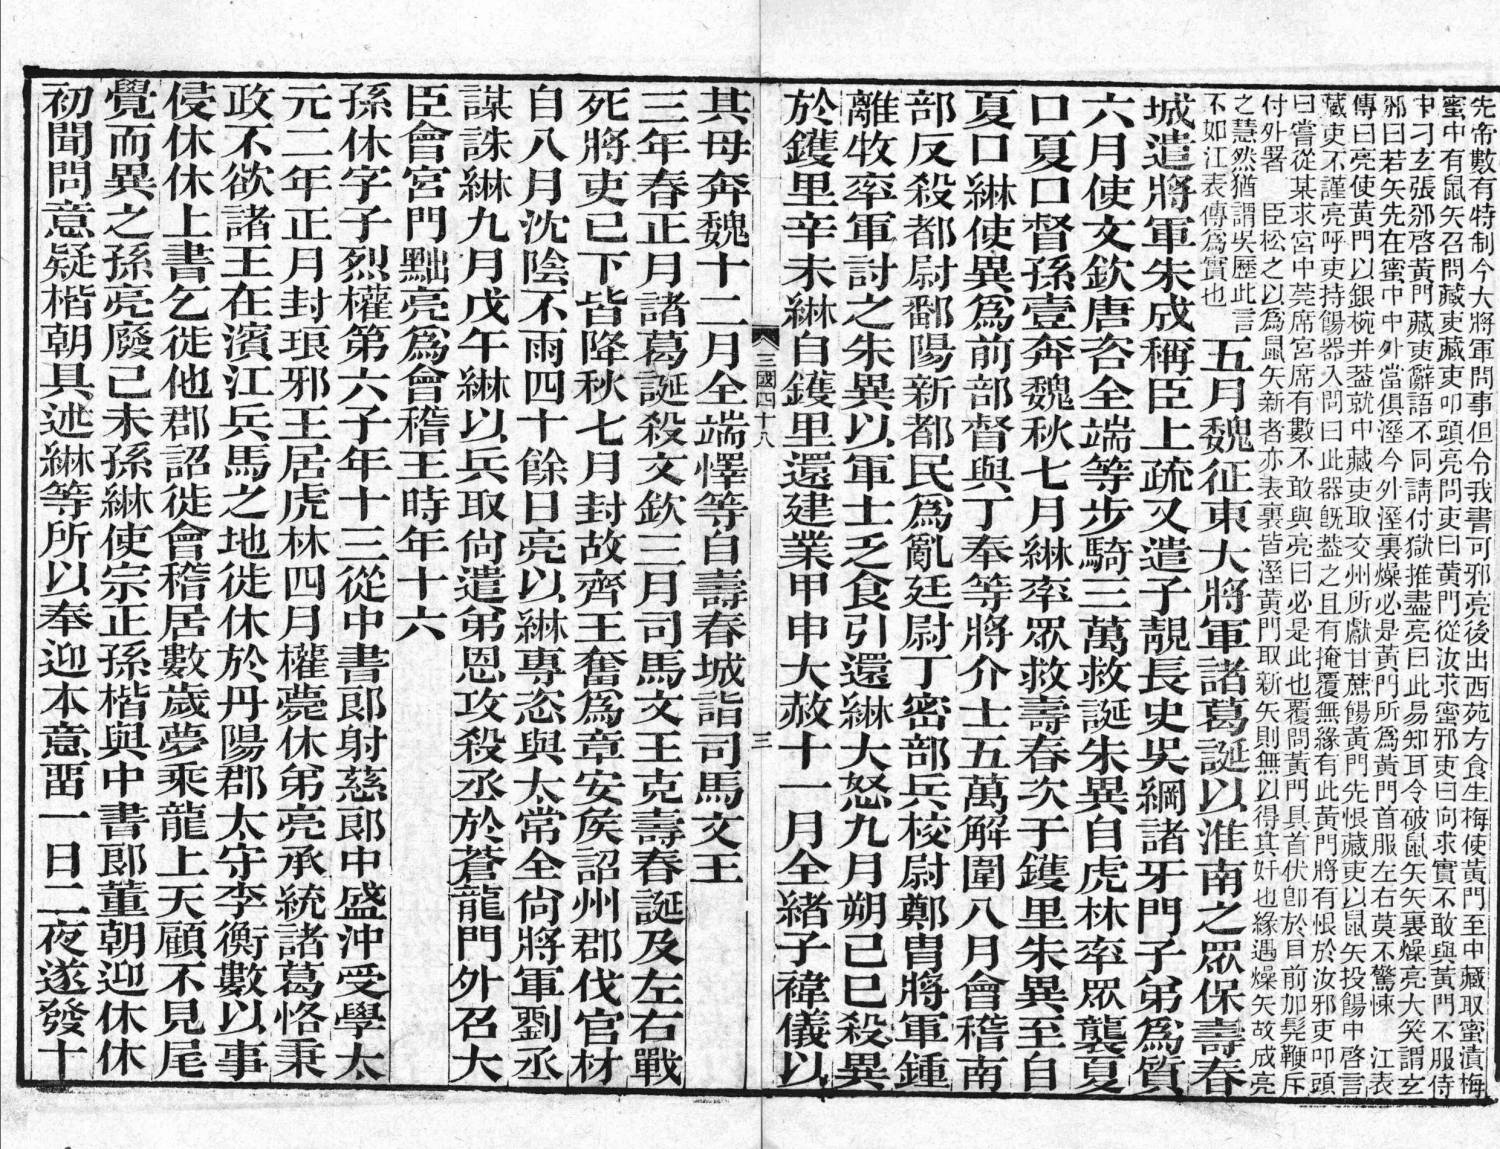 先帝數有特制今大將軍問事但令我書可邪亮後出西苑方食生梅使黃門至中藏取蜜漬梅
蜜中有鼠矢召問藏吏藏吏叩頭亮問吏曰黃門從汝求蜜邪吏曰向求實不敢與黃門不服侍
中刁玄張邠啓黃門藏吏辭語不同請付獄推盡亮曰此易知耳令破鼠矢矢裏燥亮大笑謂玄
邠曰若矢先在蜜中中外當俱溼今外溼裏燥必是黃門所爲黃門首服左右莫不驚悚 江表
傳曰亮使黃門以銀椀并葢就中藏吏取交州所獻甘蔗餳黃門先恨藏吏以鼠矢投餳中啓言
藏吏不謹亮呼吏持餳器入問曰此器旣葢之且有掩覆無緣有此黃門將有恨於汝邪吏叩頭
曰嘗從某求宮中莞席宮席有數不敢與亮曰必是此也覆問黃門具首伏卽於目前加髠鞭斥
付外署 臣松之以爲鼠矢新者亦表裏皆溼黃門取新矢則無以得其奸也緣遇燥矢故成亮
之慧然猶謂吳歷此言
不如江表傳爲實也
五月魏征東大將軍諸葛誕以淮南之眾保壽春
城遣將軍朱成稱臣上疏又遣子靚長史吳綱諸牙門子弟爲質
六月使文欽唐咨全端等步騎三萬救誕朱異自虎林率眾襲夏
口夏口督孫壹奔魏秋七月綝率眾救壽春次于鑊里朱異至自
夏口綝使異爲前部督與丁奉等將介士五萬解圍八月會稽南
部反殺都尉鄱陽新都民爲亂廷尉丁密部兵校尉鄭冑將軍鍾
離牧率軍討之朱異以軍士乏食引還綝大怒九月朔己巳殺異
於鑊里辛未綝自鑊里還建業甲申大赦十一月全緒子禕儀以
三國四十八
三
其母奔魏十二月全端懌等自壽春城詣司馬文王
三年春正月諸葛誕殺文欽三月司馬文王克壽春誕及左右戰
死將吏已下皆降秋七月封故齊王奮爲章安矦詔州郡伐宮材
自八月沈陰不雨四十餘日亮以綝專恣與太常全尙將軍劉丞
謀誅綝九月戊午綝以兵取尙遣弟恩攻殺丞於蒼龍門外召大
臣會宮門黜亮爲會稽王時年十六
孫休字子烈權第六子年十三從中書郞射慈郞中盛沖受學太
元二年正月封琅邪王居虎林四月權薨休弟亮承統諸葛恪秉
政不欲諸王在濱江兵馬之地徙休於丹陽郡太守李衡數以事
侵休休上書乞徙他郡詔徙會稽居數歲夢乘龍上天顧不見尾
覺而異之孫亮廢己未孫綝使宗正孫楷與中書郞董朝迎休休
初聞問意疑楷朝具述綝等所以奉迎本意畱一日二夜遂發十